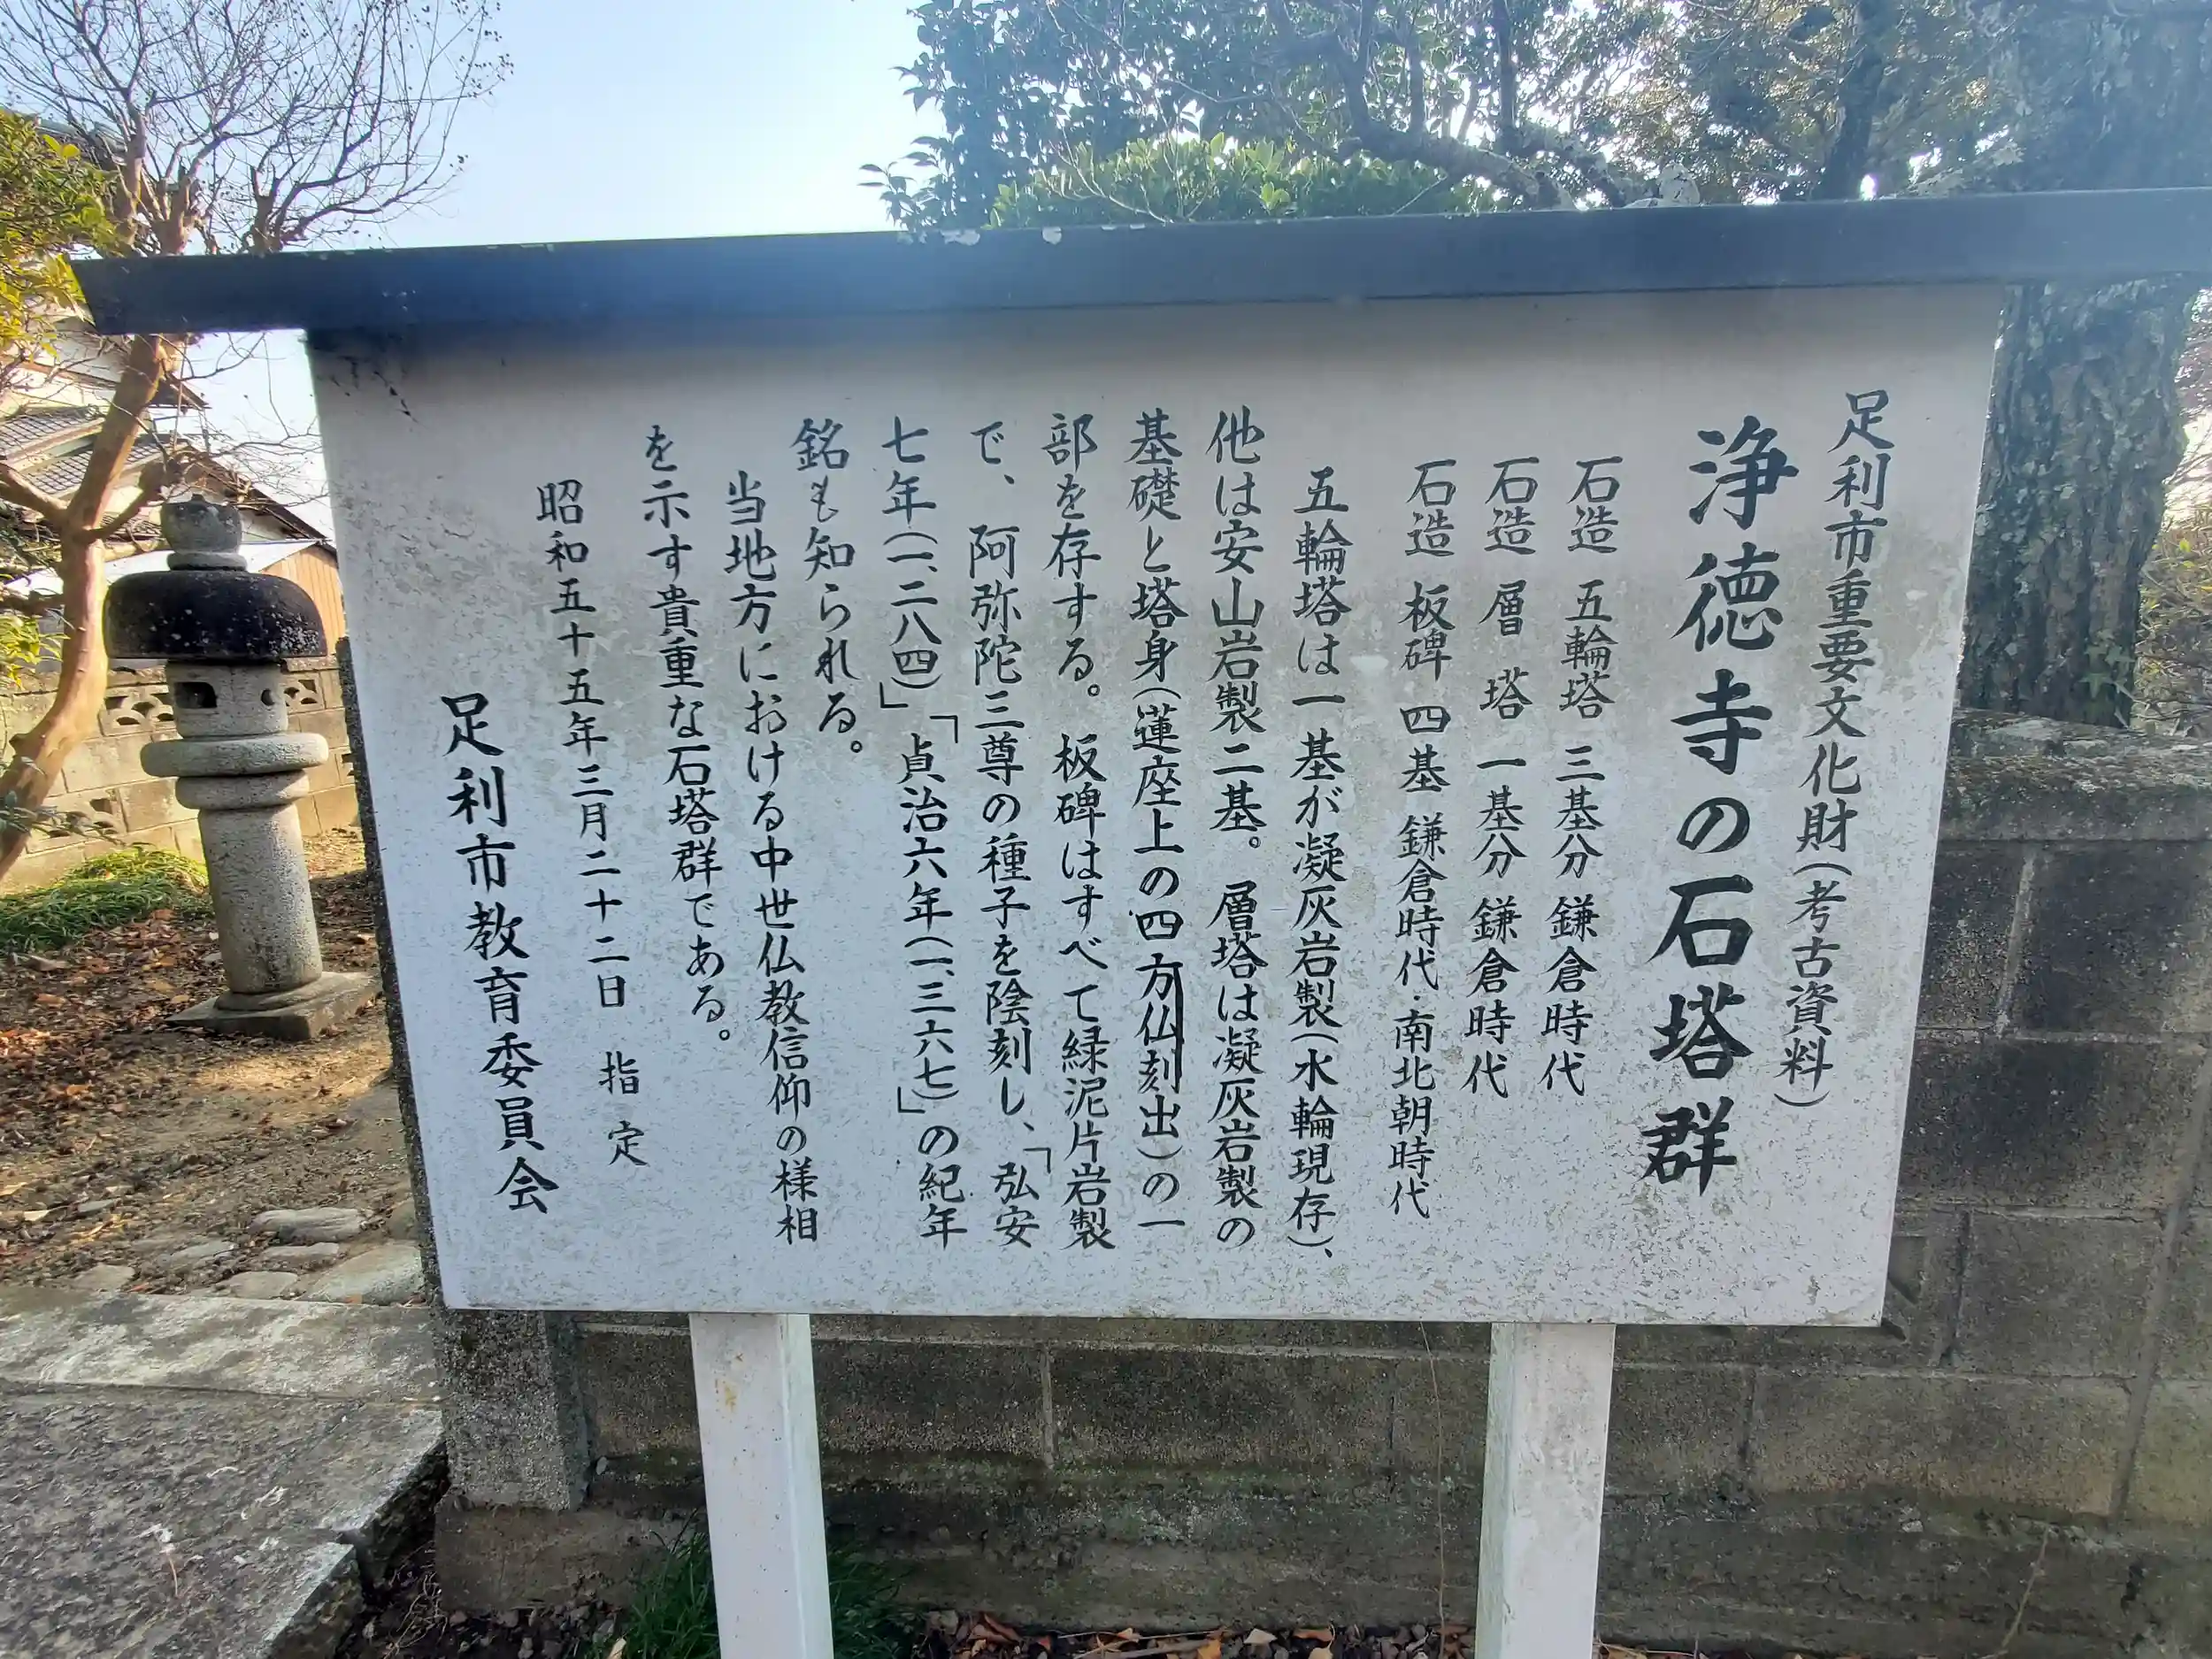 足利市重要文化財(考古資料)
浄徳寺の石塔群
石造 五輪塔 三基分 鎌倉時代
石造 層塔 一基分 鎌倉時代
石造 板碑 四基 鎌倉時代・南北朝時代
五輪塔は一基が凝灰岩製(水輪現存)、
他は安山岩製二基。層塔は凝灰岩製の
基礎と塔身(蓮座上の四方仏刻出)の一
部を存する。板碑はすべて緑泥片岩製
で、阿弥陀三尊の種子を陰刻し、「弘安
七年(一、二八四)」「貞治六年(一、三六七)」の紀年
銘も知られる。
当地方における中世仏教信仰の様相
を示す貴重な石塔群である。
昭和五十五年三月二十二日 指定
足利市教育委員会